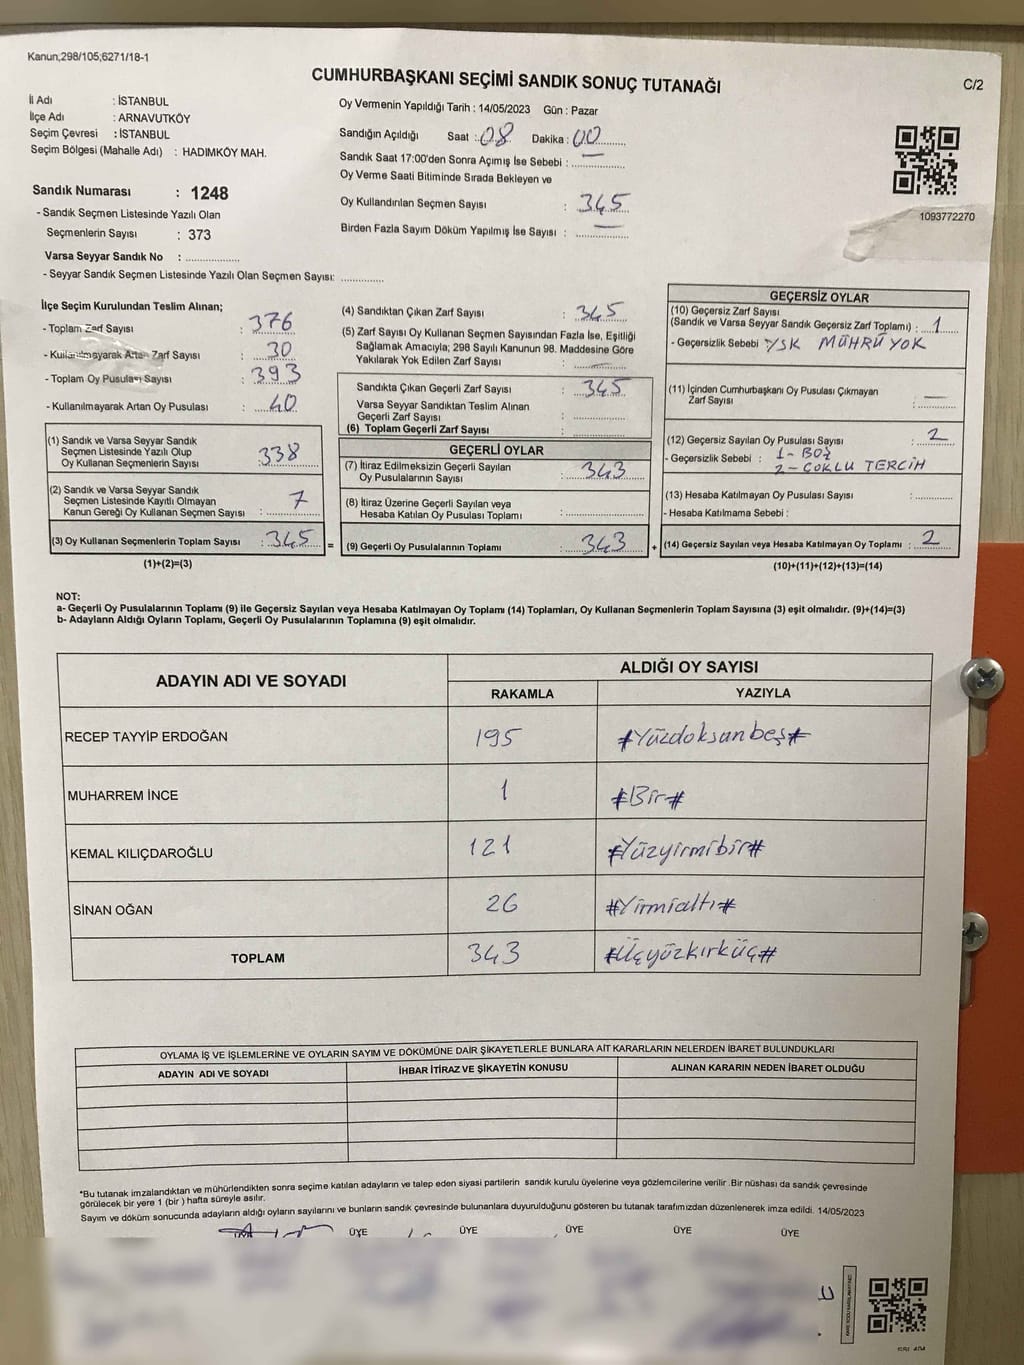 Kanun,298/105;6271/18-1
CUMHURBAŞKANI SEÇİMİ SANDIK SONUÇ TUTANAĞI
C/2
İl Adı : İSTANBUL
İlçe Adı : ARNAVUTKÖY
Seçim Çevresi : İSTANBUL
Seçim Bölgesi (Mahalle Adı) : HADIMKÖY MAH.
Oy Vermenin Yapıldığı Tarih : 14/05/2023 Gün : Pazar
Sandığın Açıldığı Saat : 08 Dakika : 00
Sandık Saat 17:00'den Sonra Açımış İse Sebebi : —
Oy Verme Saati Bitiminde Sırada Bekleyen ve
Oy Kullandırılan Seçmen Sayısı : 345
Birden Fazla Sayım Döküm Yapılmış İse Sayısı : —
1093772270
Sandık Numarası : 1248
- Sandık Seçmen Listesinde Yazılı Olan
Seçmenlerin Sayısı : 373
Varsa Seyyar Sandık No : ..................
- Seyyar Sandık Seçmen Listesinde Yazılı Olan Seçmen Sayısı: ..............
İlçe Seçim Kurulundan Teslim Alınan;
- Toplam Zarf Sayısı : 376
- Kullanılmayarak Artan Zarf Sayısı : 30
- Toplam Oy Pusulası Sayısı : 393
- Kullanılmayarak Artan Oy Pusulası : 40
(1) Sandık ve Varsa Seyyar Sandık
Seçmen Listesinde Yazılı Olup
Oy Kullanan Seçmenlerin Sayısı : 338
(2) Sandık ve Varsa Seyyar Sandık
Seçmen Listesinde Kayıtlı Olmayan
Kanun Gereği Oy Kullanan Seçmen Sayısı : 7
(3) Oy Kullanan Seçmenlerin Toplam Sayısı : 345 =
(1)+(2)=(3)
(4) Sandıktan Çıkan Zarf Sayısı : 345
(5) Zarf Sayısı Oy Kullanan Seçmen Sayısından Fazla İse, Eşitliği
Sağlamak Amacıyla; 298 Sayılı Kanunun 98. Maddesine Göre
Yakılarak Yok Edilen Zarf Sayısı : —
Sandıkta Çıkan Geçerli Zarf Sayısı : 345
Varsa Seyyar Sandıktan Teslim Alınan
Geçerli Zarf Sayısı :
(6) Toplam Geçerli Zarf Sayısı :
GEÇERLİ OYLAR
(7) İtiraz Edilmeksizin Geçerli Sayılan
Oy Pusulalarının Sayısı : 343
(8) İtiraz Üzerine Geçerli Sayılan veya
Hesaba Katılan Oy Pusulası Toplamı :
(9) Geçerli Oy Pusulalarının Toplamı : 343 +
GEÇERSİZ OYLAR
(10) Geçersiz Zarf Sayısı
(Sandık ve Varsa Seyyar Sandık Geçersiz Zarf Toplamı) : 1
- Geçersizlik Sebebi : YSK MÜHRÜ YOK
(11) İçinden Cumhurbaşkanı Oy Pusulası Çıkmayan
Zarf Sayısı : —
(12) Geçersiz Sayılan Oy Pusulası Sayısı : 2
- Geçersizlik Sebebi : 1- BOŞ
2- ÇOKLU TERCİH
(13) Hesaba Katılmayan Oy Pusulası Sayısı :
- Hesaba Katılmama Sebebi :
(14) Geçersiz Sayılan veya Hesaba Katılmayan Oy Toplamı : 2
(10)+(11)+(12)+(13)=(14)
NOT:
a- Geçerli Oy Pusulalarının Toplamı (9) ile Geçersiz Sayılan veya Hesaba Katılmayan Oy Toplamı (14) Toplamları, Oy Kullanan Seçmenlerin Toplam Sayısına (3) eşit olmalıdır. (9)+(14)=(3)
b- Adayların Aldığı Oyların Toplamı, Geçerli Oy Pusulalarının Toplamına (9) eşit olmalıdır.
ADAYIN ADI VE SOYADI
ALDIĞI OY SAYISI
RAKAMLA YAZIYLA
RECEP TAYYİP ERDOĞAN 195 #Yüzdoksanbeş#
MUHARREM İNCE 1 #Bir#
KEMAL KILIÇDAROĞLU 121 #Yüzyirmibir#
SİNAN OĞAN 26 #Yirmialtı#
TOPLAM 343 #Üçyüzkırküç#
OYLAMA İŞ VE İŞLEMLERİNE VE OYLARIN SAYIM VE DÖKÜMÜNE DAİR ŞİKAYETLERLE BUNLARA AİT KARARLARIN NELERDEN İBARET BULUNDUKLARI
ADAYIN ADI VE SOYADI İHBAR İTİRAZ VE ŞİKAYETİN KONUSU ALINAN KARARIN NEDEN İBARET OLDUĞU
*Bu tutanak imzalandıktan ve mühürlendikten sonra seçime katılan adayların ve talep eden siyasi partilerin sandık kurulu üyelerine veya gözlemcilerine verilir .Bir nüshası da sandık çevresinde
görülecek bir yere 1 (bir ) hafta süreyle asılır.
Sayım ve döküm sonucunda adayların aldığı oyların sayılarını ve bunların sandık çevresinde bulunanlara duyurulduğunu gösteren bu tutanak tarafımızdan düzenlenerek imza edildi. 14/05/2023
ÜYE ÜYE ÜYE ÜYE ÜYE